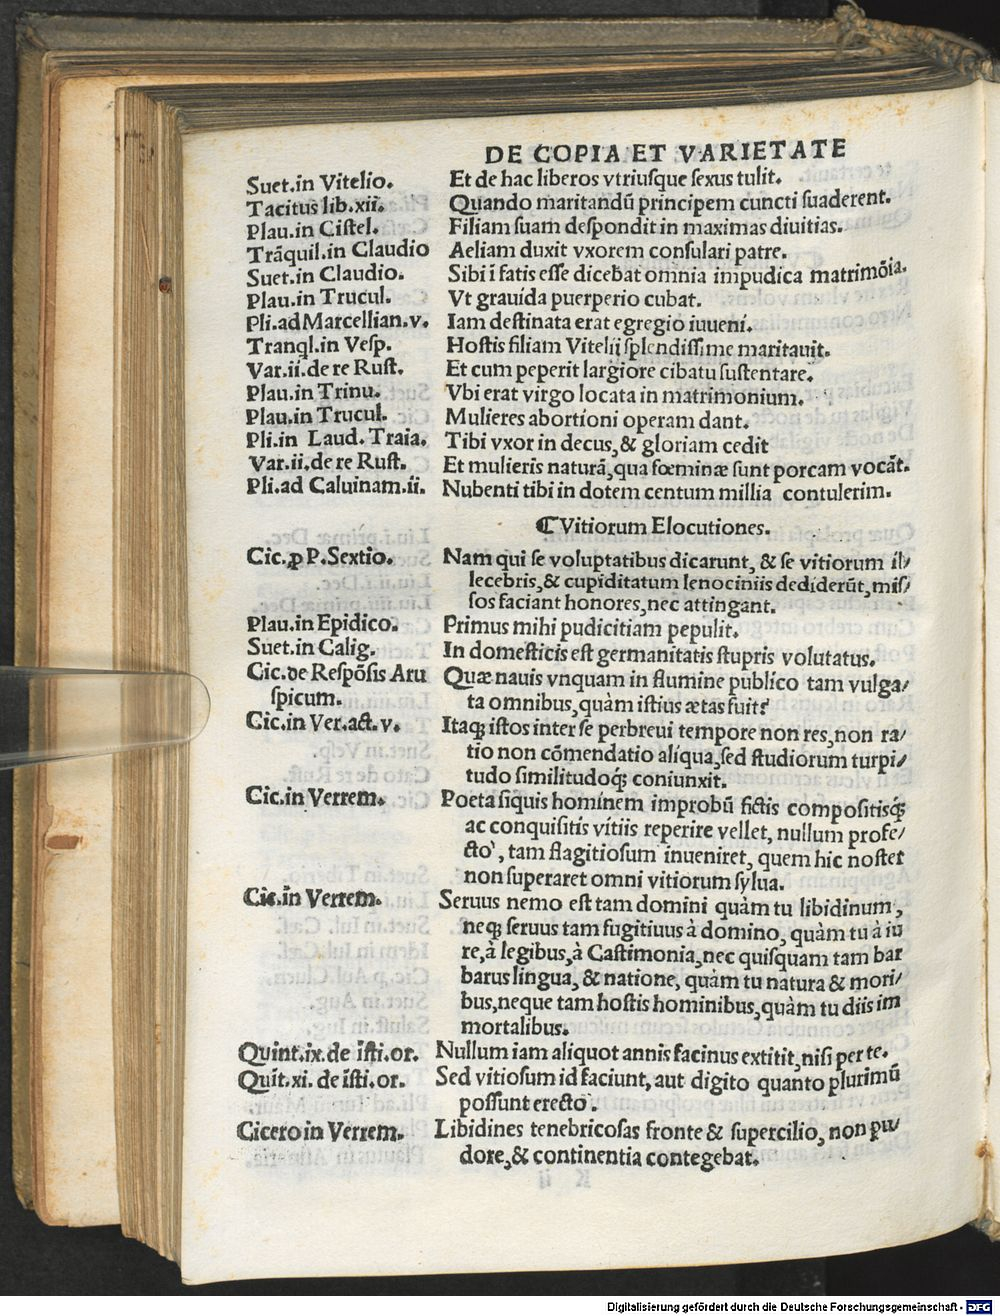 DE COPIA ET VARIETATE
Suet.in Vitelio. Et de hac liberos vtriusque sexus tulit.
Tacitus lib.xii. Quando maritandū principem cuncti suaderent.
Plau.in Cistel. Filiam suam despondit in maximas diuitias.
Trāquil.in Claudio Aeliam duxit vxorem consulari patre.
Suet.in Claudio. Sibi ī fatis esse dicebat omnia impudica matrimōia.
Plau.in Trucul. Vt grauida puerperio cubat.
Pli.ad Marcellian.v. Iam destinata erat egregio iuueni.
Tranql.in Vesp. Hostis filiam Vitelij splendissime maritauit.
Var.ii.de re Rust. Et cum peperit largiore cibatu sustentare.
Plau.in Trinu. Vbi erat virgo locata in matrimonium.
Plau.in Trucul. Mulieres abortioni operam dant.
Pli.in Laud. Traia. Tibi vxor in decus,& gloriam cedit
Var.ii.de re Rust. Et mulieris naturā,qua fœminæ sunt porcam vocāt.
Pli.ad Caluinam.ii. Nubenti tibi in dotem centum millia contulerim.
¶Vitiorum Elocutiones.
Cic.ꝓ P.Sextio. Nam qui se voluptatibus dicarunt, & se vitiorum il/
lecebris,& cupiditatum lenociniis dediderūt,mis/
sos faciant honores,nec attingant.
Plau.in Epidico. Primus mihi pudicitiam pepulit.
Suet.in Calig. In domesticis est germanitatis stupris volutatus.
Cic.de Respōsis Aru Quæ nauis vnquam in flumine publico tam vulga/
spicum. ta omnibus,quàm istius ætas fuit?
Cic.in Ver.act.v. Itaq; istos inter se perbreui tempore non res,non ra/
tio non cōmendatio aliqua,sed studiorum turpi/
tudo similitudoq; coniunxit.
Cic.in Verrem. Poeta siquis hominem improbū fictis compositisq;
ac conquisitis vitiis reperire vellet, nullum profe/
cto, tam flagitiosum inueniret, quem hic noster
non superaret omni vitiorum sylua.
Cic.in Verrem. Seruus nemo est tam domini quàm tu libidinum,
neq; seruus tam fugitiuus à domino, quàm tu à iu
re,à legibus,à Castimonia,nec quisquam tam bar
barus lingua, & natione, quàm tu natura & mori/
bus,neque tam hostis hominibus,quàm tu diis im
mortalibus.
Quint.ix.de īsti.or. Nullum iam aliquot annis facinus extitit,nisi per te.
Quīt.xi. de īsti.or. Sed vitiosum id faciunt, aut digito quanto plurimū
possunt erecto.
Cicero in Verrem. Libidines tenebricosas fronte & supercilio, non pu/
dore,& continentia contegebat.
Digitalisierung gefördert durch die Deutsche Forschungsgemeinschaft - DFG